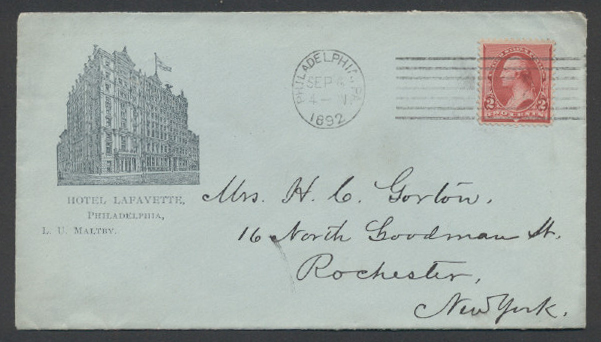 HOTEL LAFAYETTE,
PHILADELPHIA,
L. U. MALTBY.
PHILADELPHIA, PA.
SEP 4
4 -
1892
2 2
Mrs. H. C. Gorton,
16 North Goodman St.
Rochester,
New York.